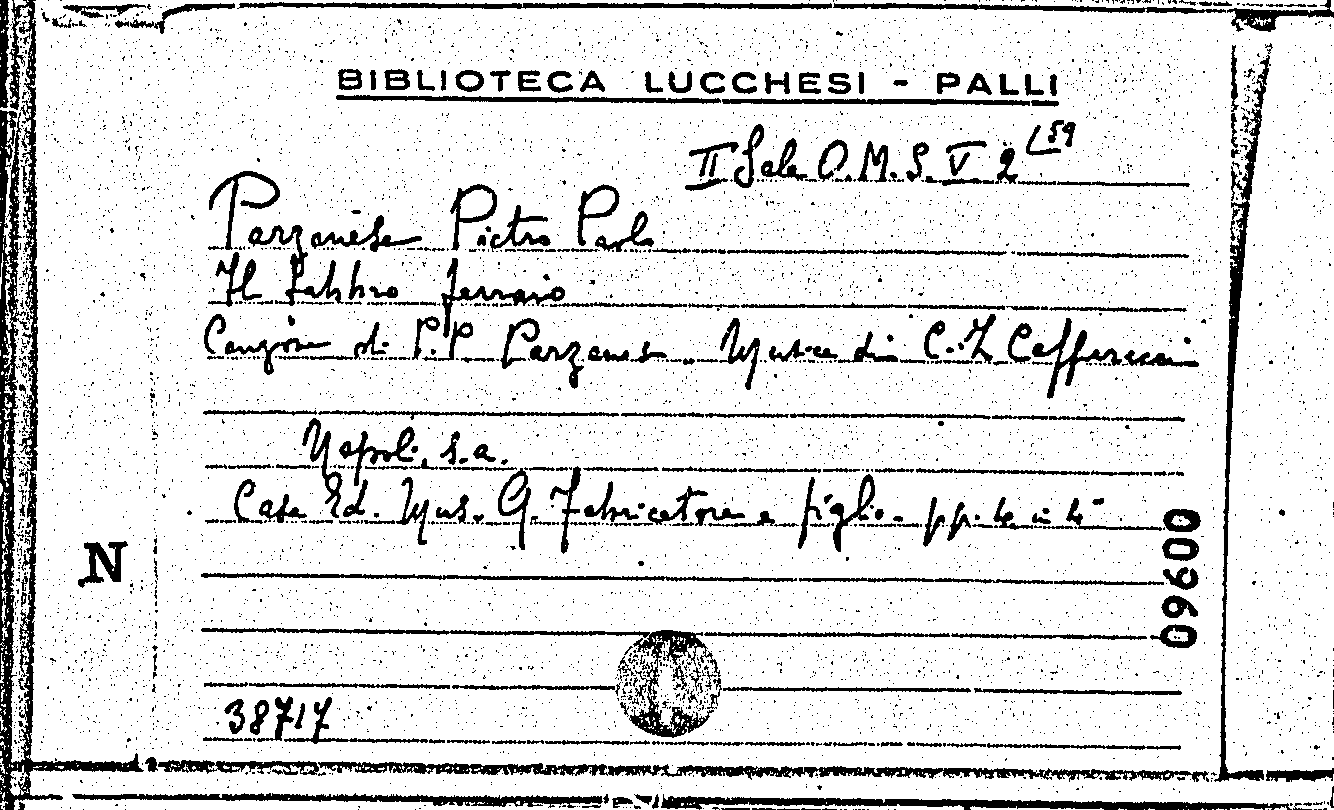 BIBLIOTECA LUCCHESI - PALLI
II Sala O. M. S. V 2 (59
Parzanese Pietro Paolo
Il Fabbro ferraio
Canzone di P. P. Parzanese. Musica di C. Z. Cafferecci
Napoli, s.a.
Casa Ed. Mus. G. Fabricatore e figlio. pp. 4 in 4°
N
09600
38717